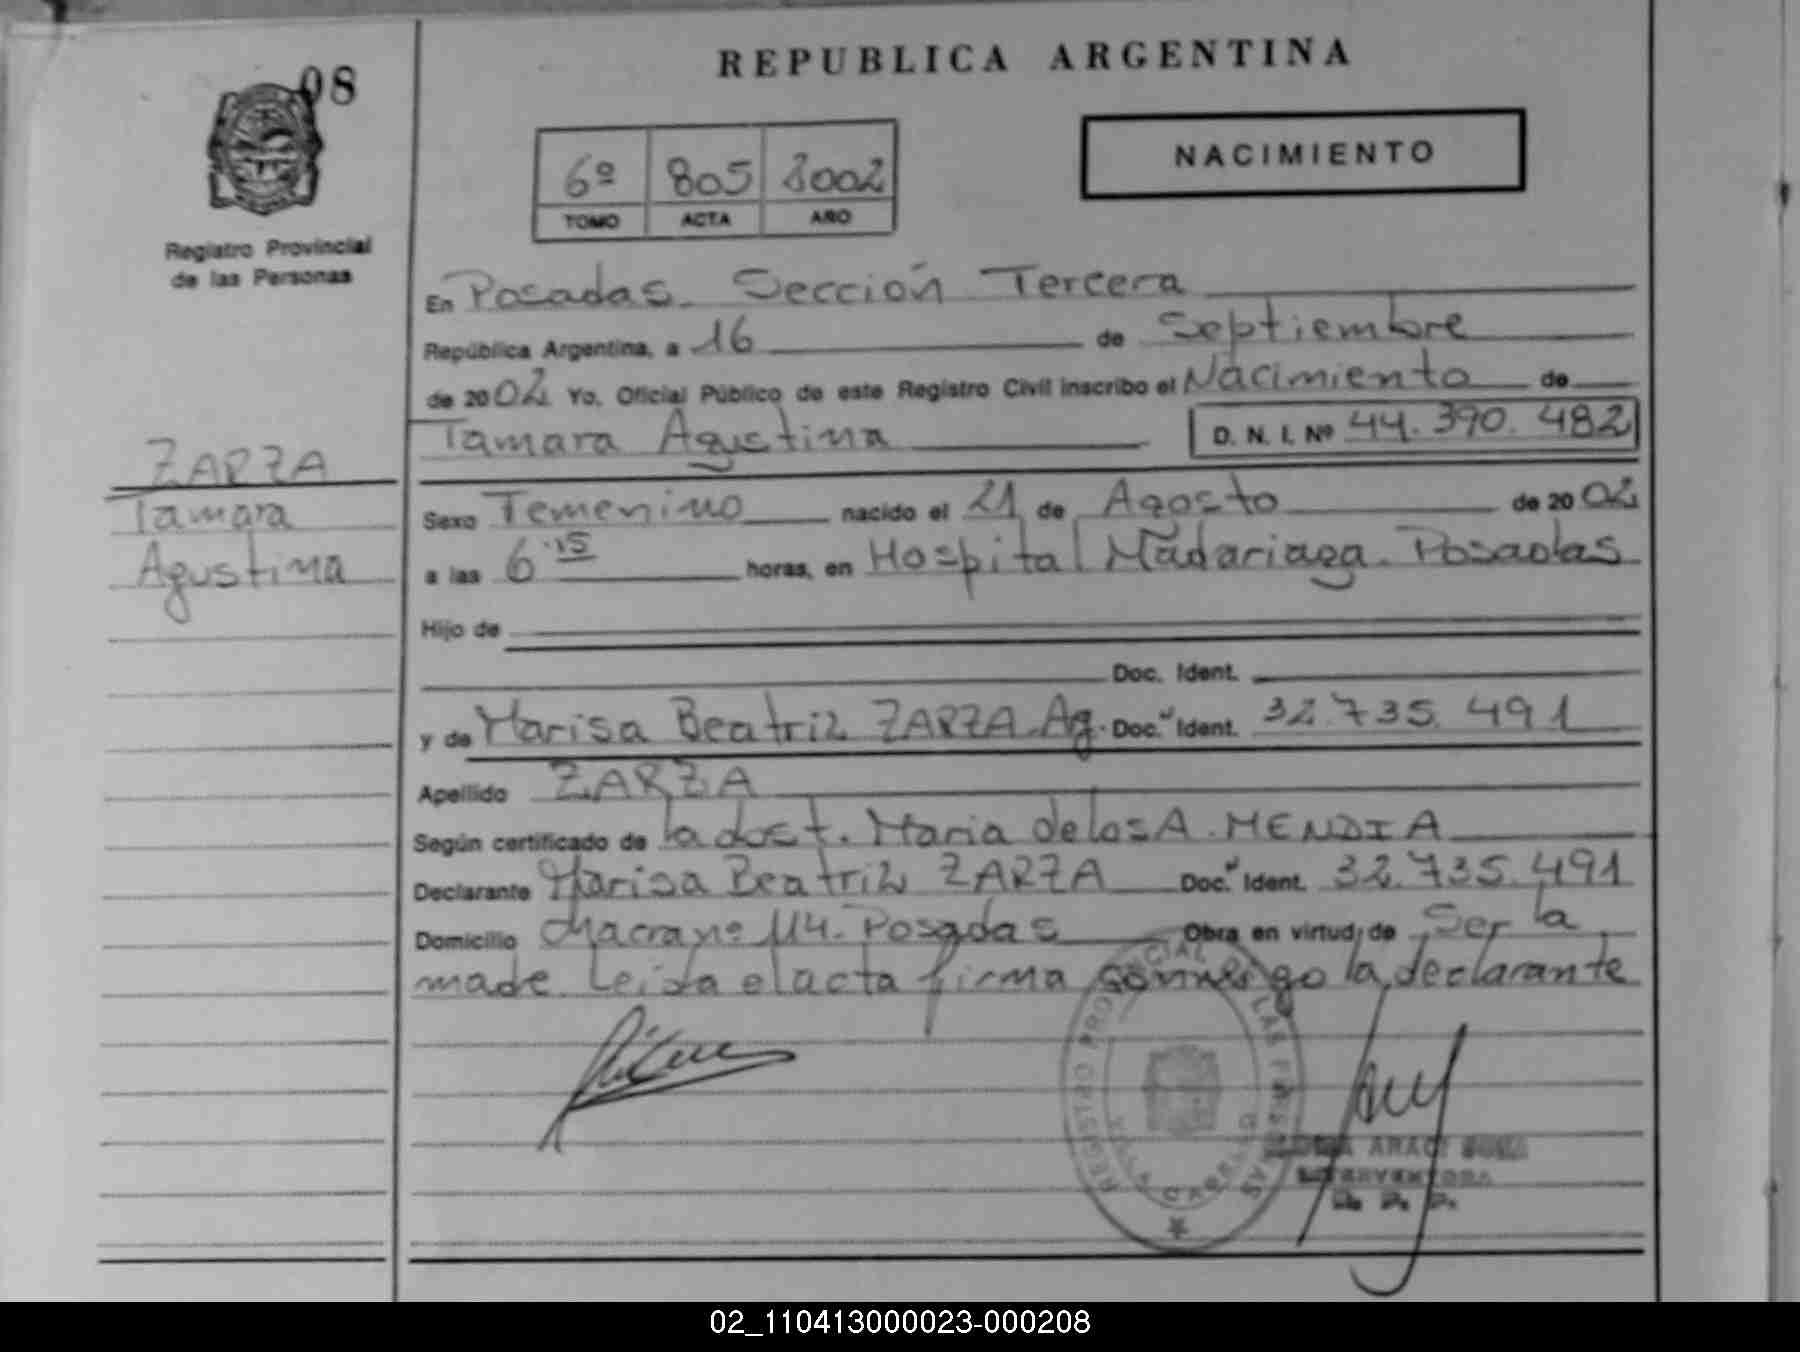 REPUBLICA ARGENTINA
08
NACIMIENTO
6º 805 2002
TOMO ACTA AÑO
Registro Provincial
de las Personas
En Posadas. Sección Tercera
República Argentina, a 16 de Septiembre
de 2002 Yo, Oficial Público de este Registro Civil inscribo el Nacimiento de
Tamara Agustina D. N. I. Nº 44.390.482
ZARZA
Tamara
Agustina
Sexo Femenino nacido el 21 de Agosto de 2002
a las 6.15 horas, en Hospital Madariaga. Posadas
Hijo de
Doc. Ident.
y de Marisa Beatriz ZARZA. Ag. Doc. Ident. 32.735.491
Apellido ZARZA
Según certificado de la dost. Maria de los A. MENDIA
Declarante Marisa Beatriz ZARZA Doc. Ident. 32.735.491
Domicilio Chacra nº 114. Posadas Obra en virtud de Ser la
made. Leida el acta firma conmigo la declarante
REGISTRO PROVINCIAL DE LAS PERSONAS
VILLA CABELLO
ARACI
INTERVENTORA
R. P. P.
02_110413000023-000208